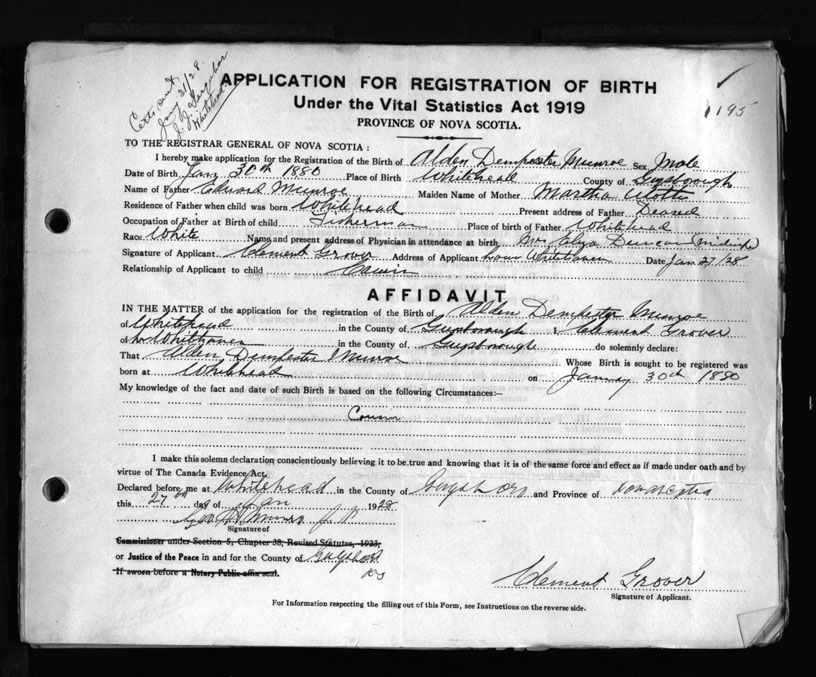 Jany 31/28.
Whitehead
APPLICATION FOR REGISTRATION OF BIRTH
1195
Under the Vital Statistics Act 1919
PROVINCE OF NOVA SCOTIA.
TO THE REGISTRAR GENERAL OF NOVA SCOTIA :
I hereby make application for the Registration of the Birth of Alden Dempester Munroe Sex Male
Date of Birth Jan 30th 1880 Place of Birth Whitehead County of Guysborough
Name of Father Edward Munroe Maiden Name of Mother Martha
Residence of Father when child was born Whitehead Present address of Father Deased
Occupation of Father at Birth of child Fisherman Place of birth of Father Whitehead
Race White Name and present address of Physician in attendance at birth Mrs Eliza Duncan
Signature of Applicant Clement Grover Address of Applicant Whitehaven Date Jan 27/28
Relationship of Applicant to child Cousin
AFFIDAVIT
IN THE MATTER of the application for the registration of the Birth of Alden Dempester Munroe
of Whitehead in the County of Guysborough I, Clement Grover
of Whitehaven in the County of Guysborough do solemnly declare:
That Alden Dempester Munroe Whose Birth is sought to be registered was
born at Whitehead on January 30th 1880
My knowledge of the fact and date of such Birth is based on the following Circumstances:—
Cousin
I make this solemn declaration conscientiously believing it to be true and knowing that it is of the same force and effect as if made under oath and by
virtue of The Canada Evidence Act.
Declared before me at Whitehead in the County of Guysboro and Province of Nova Scotia
this 27th day of Jan 1928
Signature of
Commissioner under Section 5, Chapter 38, Revised Statutes, 1923,
or Justice of the Peace in and for the County of
If sworn before a Notary Public affix seal.
Clement Grover
Signature of Applicant.
For Information respecting the filling out of this Form, see Instructions on the reverse side.